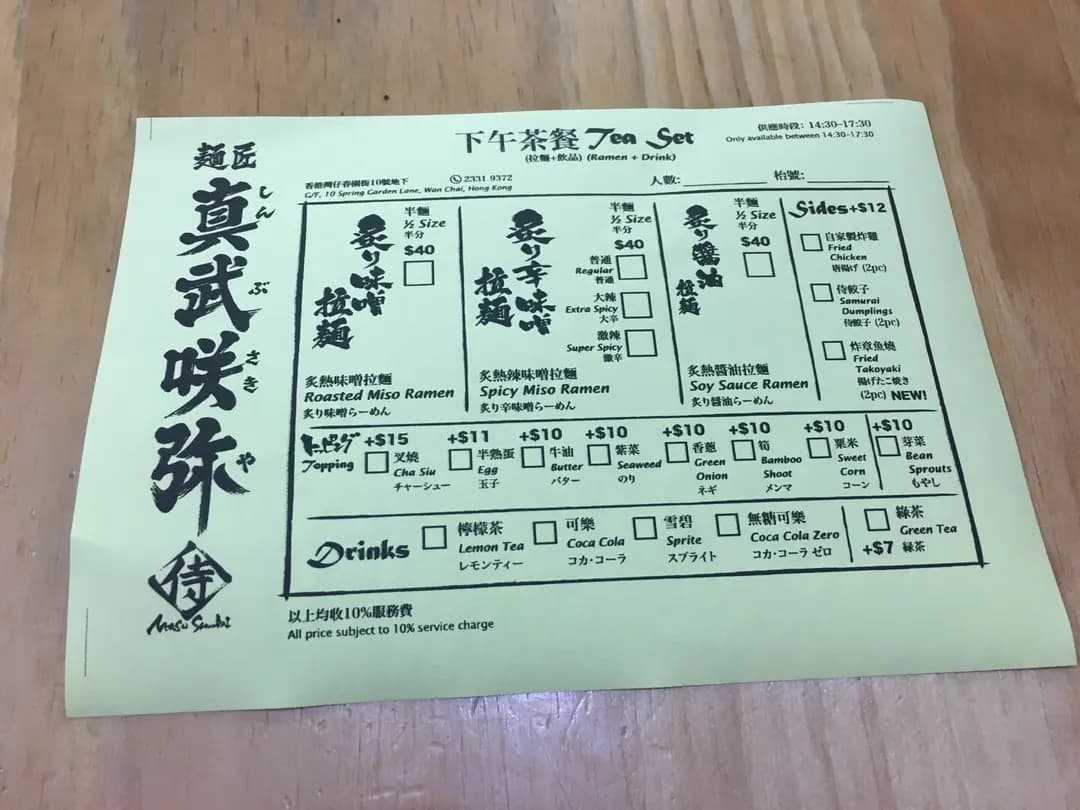 麺匠
真武咲弥
しん
ぶ
さき
や
侍
下午茶餐 Tea Set
(拉麵+飲品) (Ramen + Drink)
供應時段: 14:30-17:30
Only available between 14:30-17:30
香港灣仔春園街10號地下
2331 9372
G/F, 10 Spring Garden Lane, Wan Chai, Hong Kong
人數:
枱號:
炙り味噌
拉麺
半麵
½ Size
半分
$40
炙熱味噌拉麵
Roasted Miso Ramen
炙り味噌らーめん
炙り辛味噌
拉麺
半麵
½ Size
半分
$40
普通
Regular
普通
大辣
Extra Spicy
大辛
激辣
Super Spicy
激辛
炙熱辣味噌拉麵
Spicy Miso Ramen
炙り辛味噌らーめん
炙り醬油
拉麺
半麵
½ Size
半分
$40
炙熱醬油拉麵
Soy Sauce Ramen
炙り醬油らーめん
Sides+$12
自家製炸雞
Fried
Chicken
唐揚げ (2pc)
侍餃子
Samurai
Dumplings
侍餃子 (2pc)
炸章魚燒
Fried
Takoyaki
揚げたこ焼き
(2pc) NEW!
トッピング
Topping
+$15
叉燒
Cha Siu
チャーシュー
+$11
半熟蛋
Egg
玉子
+$10
牛油
Butter
バター
+$10
紫菜
Seaweed
のり
+$10
香蔥
Green
Onion
ネギ
+$10
筍
Bamboo
Shoot
メンマ
+$10
粟米
Sweet
Corn
コーン
+$10
芽菜
Bean
Sprouts
もやし
Drinks
檸檬茶
Lemon Tea
レモンティー
可樂
Coca Cola
コカ·コーラ
雪碧
Sprite
スプライト
無糖可樂
Coca Cola Zero
コカ·コーラ ゼロ
綠茶
Green Tea
+$7 緑茶
以上均收10%服務費
All price subject to 10% service charge